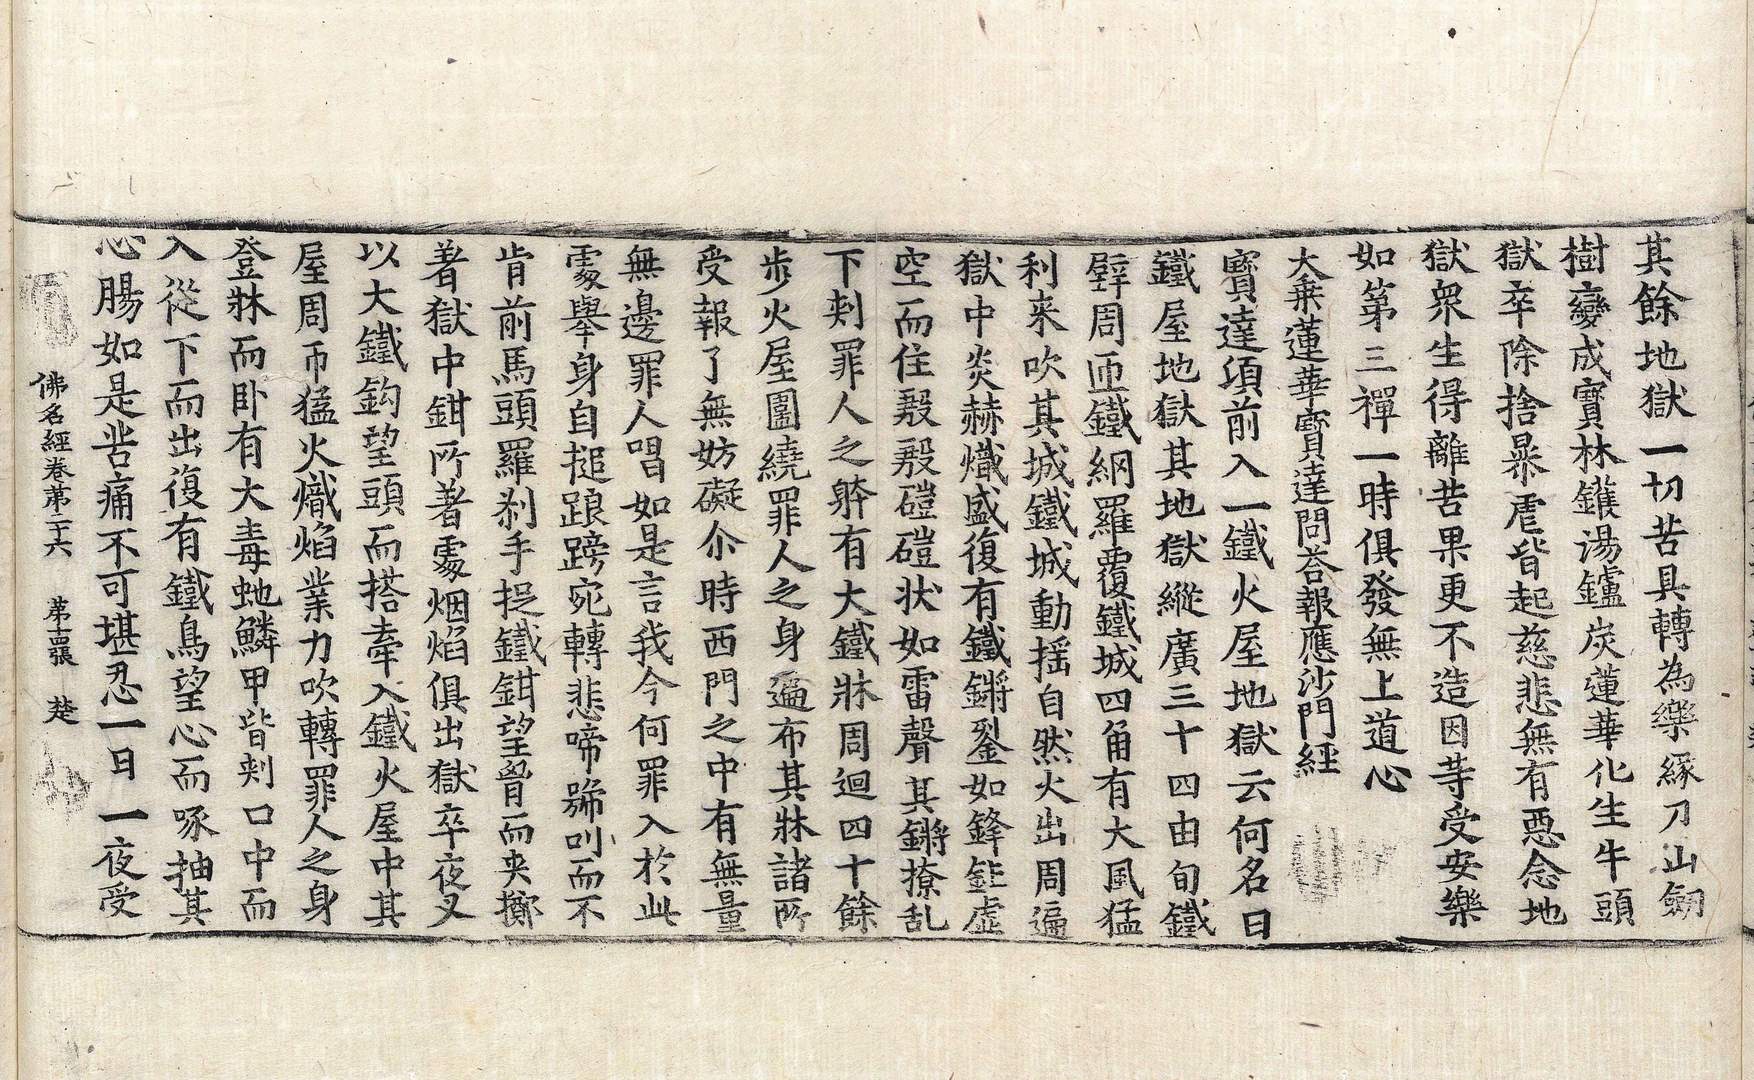 其餘地獄一切苦具轉為樂緣刀山劒
樹變成寳林鑊湯鑪炭蓮華化生牛頭
獄卒除捨暴虐皆起慈悲無有惡念地
獄衆生得離苦果更不造因䓁受安樂
如第三禪一時俱發無上道心
大乗蓮華寳達問荅報應沙門經
寳達頃前入一鐵火屋地獄云何名曰
鐵屋地獄其地獄縱廣三十四由旬鐵
壁周匝鐵網羅覆鐵城四角有大風猛
利来吹其城鐵城動揺自然火出周遍
獄中炎赫熾盛復有鐵鏘鋻如鋒鉟虛
空而住殸殸磑磑状如雷聲其鏘撩乱
下刾罪人之躰有大鐵牀周迴四十餘
歩火屋圍繞罪人之身遍布其牀諸所
受報了無妨礙尒時西門之中有無量
無邊罪人唱如是言我今何罪入於此
䖏舉身自搥踉蹡宛轉悲啼號叫而不
肯前馬頭羅刹手捉鐵鉗望脅而夾擲
著獄中鉗所著䖏烟焰俱出獄卒夜叉
以大鐵鈎望頭而搭牽入鐵火屋中其
屋周帀猛火熾焰業力吹轉罪人之身
登牀而卧有大毒虵鱗甲皆刾口中而
入從下而出復有鐵鳥望心而啄抽其
心腸如是苦痛不可堪忍一日一夜受
佛名經卷苐二十六 苐十四張 楚